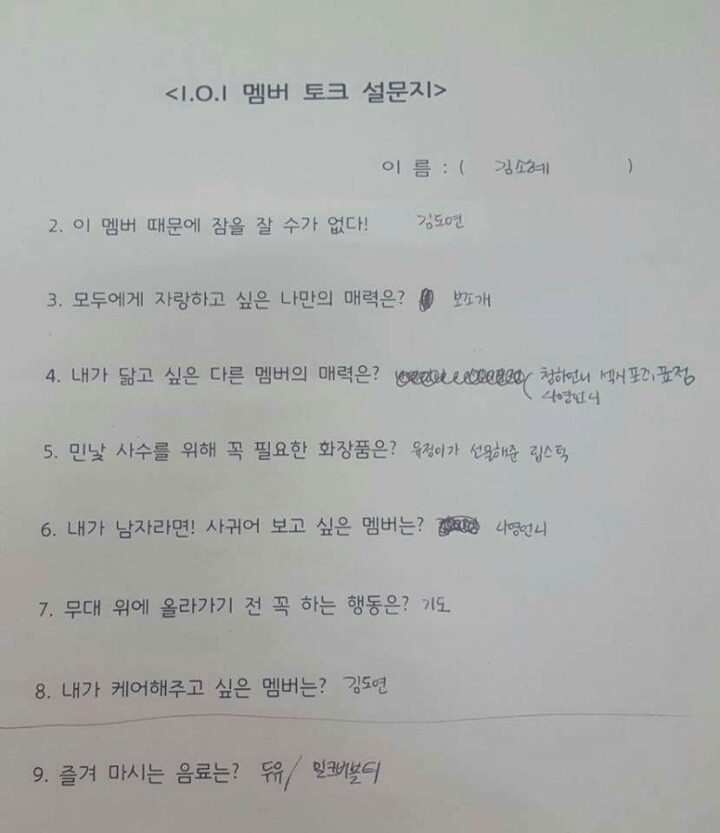 <I.O.I 멤버 토크 설문지>
이 름 : ( 김소혜 )
2. 이 멤버 때문에 잠을 잘 수가 없다! 김도연
3. 모두에게 자랑하고 싶은 나만의 매력은? 보조개
4. 내가 닮고 싶은 다른 멤버의 매력은? 청하언니 섹시 표정
나영언니
5. 민낯 사수를 위해 꼭 필요한 화장품은? 유정이가 선물해준 립스틱
6. 내가 남자라면! 사귀어 보고 싶은 멤버는? 나영언니
7. 무대 위에 올라가기 전 꼭 하는 행동은? 기도
8. 내가 케어해주고 싶은 멤버는? 김도연
9. 즐겨 마시는 음료는? 두유/ 밀크버블티